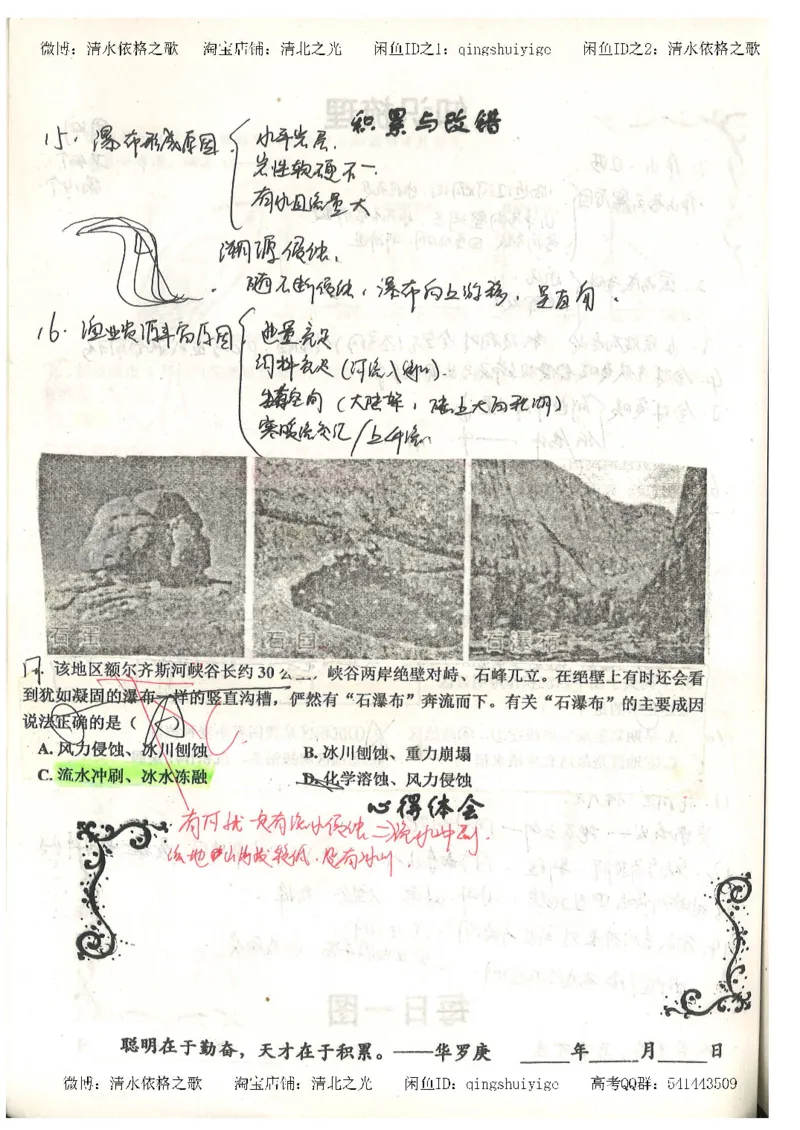 微博：清水依格之歌 淘宝店铺：清北之光 闲鱼ID之1：qingshuiyige 闲鱼ID之2：清水依格之歌
积累与改错
15. 瀑布形成原因
水平岩层.
岩性软硬不一
有水且流量大
溯源侵蚀.
随不断侵蚀，瀑布向上游移，
16. 渔业资源丰富原因
饵料充足（河流入海口）.
生存空间（大陆架，陆上大的积湖）
寒暖流交汇/上升流.
石蛋
石臼
石瀑布
该地区额尔齐斯河峡谷长约 30 公 峡谷两岸绝壁对峙、石峰兀立。在绝壁上有时还会看
到犹如凝固的瀑布一样的竖直沟槽，俨然有“石瀑布”奔流而下。有关“石瀑布”的主要成因
说法正确的是（
A. 风力侵蚀、冰川刨蚀 B. 冰川刨蚀、重力崩塌
C. 流水冲刷、冰水冻融 D. 化学溶蚀、风力侵蚀
心得体会
有流水侵蚀 流水冲刷.
该地 山海拔较低.
聪明在于勤奋，天才在于积累。——华罗庚 年 月 日
微博：清水依格之歌 淘宝店铺：清北之光 闲鱼ID：qingshuiyige 高考QQ群：541443509